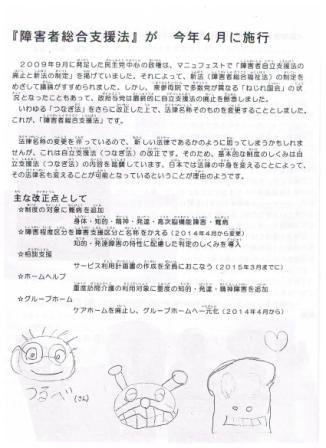 『障害者総合支援法』が 今年４月に施行
２００９年９月に発足した民主党中心の政権は、マニュフェストで「障害者自立支援法の
廃止と新法の制定」を掲げていました。それによって、新法（障害者総合福祉法）の制定を
めざして議論がすすめられました。しかし、衆参両院で多数党が異なる「ねじれ国会」の状
況となったこともあって、政府与党は最終的に自立支援法の廃止を断念しました。
いわゆる「つなぎ法」をさらに改正した上で、法律名称そのものを変更することとしました。
これが、「障害者総合支援法」です。
法律名称の変更を伴っているので、新しい法律であるかのように思ってしまうかもしれま
せんが、これは自立支援法（つなぎ法）の改正です。そのため、基本的な制度のしくみは自
立支援法（つなぎ法）の内容を踏襲しています。日本では法律の中身を変えることによって、
その法律名も変えることが可能となっているということが理由のようです。
主な改正点として
☆制度の対象に難病を追加
身体・知的・精神・発達・高次脳機能障害・難病
☆障害程度区分を障害支援区分と名称をかえる（２０１４年４月から変更）
知的・発達障害の特性に配慮した判定のしくみを導入
☆相談支援
サービス利用計画書の作成を全員におこなう（２０１５年３月までに）
☆ホームヘルプ
重度訪問介護の利用対象に重度の知的・発達・精神障害を追加
☆グループホーム
ケアホームを廃止し、グループホームへ一元化（２０１４年４月から）
つるべ(さん)